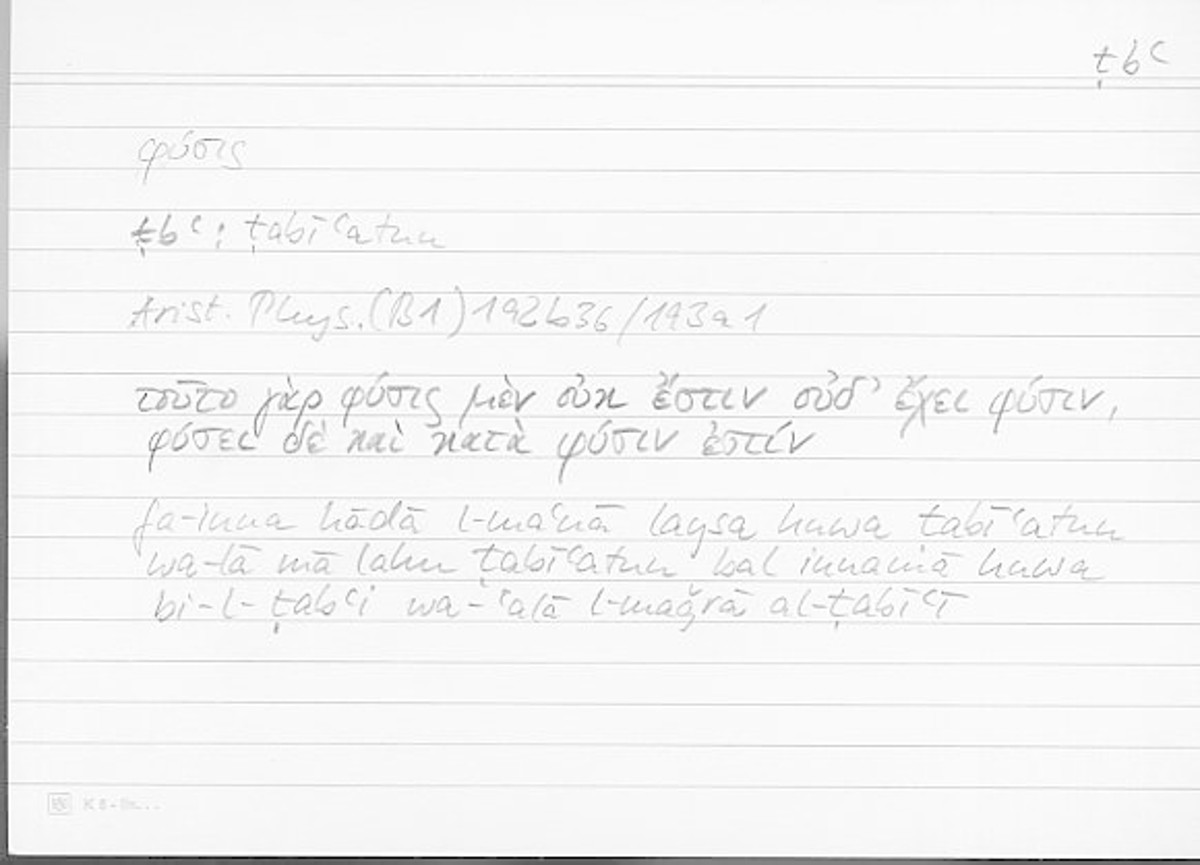 ṭbʿ
φύσις
ṭbʿ: ṭabīʿatun
Arist. Phys. (B1) 192b36/193a1
τοῦτο γὰρ φύσις μὲν οὐκ ἔστιν οὐδ’ ἔχει φύσιν,
φύσει δὲ καὶ κατὰ φύσιν ἐστίν
fa-inna hāḏā l-maʿnā laysa huwa ṭabīʿatun
wa-lā mā lahu ṭabīʿatun bal innamā huwa
bi-l-ṭabʿi wa-ʿalā l-maǧrā al-ṭabīʿī